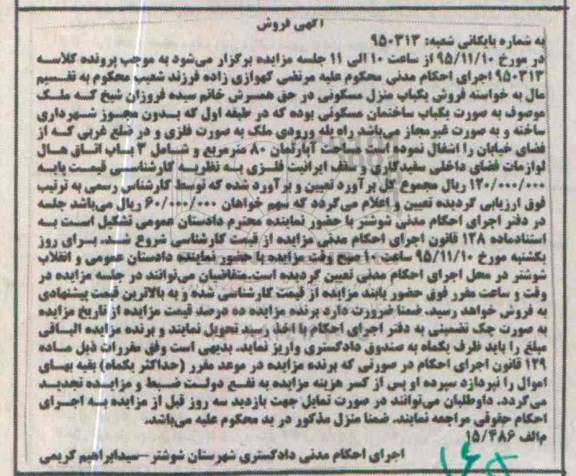 آگهی فروش
به شماره بایگانی شعبه: ۹۵۰۳۱۳
در مورخ ۹۵/۱۱/۱۰ از ساعت ۱۰ الی ۱۱ جلسه مزایده برگزار می‌شود به موجب پرونده کلاسه
۹۵۰۳۱۳ اجرای احکام مدنی محکوم علیه مرتضی کهوازی زاده فرزند شعیب محکوم به تقسیم
مال به خواسته فروش یکباب منزل مسکونی در حق همسرش خانم سیده فروزان شیخ که ملک
موصوف به صورت یکباب ساختمان مسکونی بوده که در طبقه اول که بدون مجوز شهرداری
ساخته و به صورت غیرمجاز می‌باشد راه پله ورودی ملک به صورت فلزی و در ضلع غربی که از
فضای خیابان را اشغال نموده است مساحت آپارتمان ۸۰ مترمربع و شامل ۳ باب اتاق هال
لوازمات فضای داخلی سفیدکاری و سقف ایرانیت فلزی به نظریه کارشناسی قیمت پایه
۱۲۰/۰۰۰/۰۰۰ ریال مجموع کل برآورد تعیین و برآورد شده که توسط کارشناس رسمی به ترتیب
فوق ارزیابی گردیده تعیین و اعلام می‌گردد که سهم خواهان ۶۰/۰۰۰/۰۰۰ ریال می‌باشد جلسه
در دفتر اجرای احکام مدنی شوشتر با حضور نماینده محترم دادستان عمومی تشکیل است به
استنادماده ۱۲۸ قانون اجرای احکام مدنی مزایده از قیمت کارشناسی شروع شد. برای روز
یکشنبه مورخ ۹۵/۱۱/۱۰ ساعت ۱۰ صبح وقت مزایده با حضور نماینده دادستان عمومی و انقلاب
شوشتر در محل اجرای احکام مدنی تعیین گردیده است.متقاضیان می‌توانند در جلسه مزایده در
وقت و ساعت مقرر فوق حضور یابند مزایده از قیمت کارشناسی شده و به بالاترین قیمت پیشنهادی
به فروش خواهد رسید. ضمنا ضرورت دارد برنده مزایده ده درصد قیمت مزایده از تاریخ مزایده
به صورت چک تضمینی به دفتر اجرای احکام با اخذ رسید تحویل نمایند و برنده مزایده الباقی
مبلغ را باید ظرف یکماه به صندوق دادگستری واریز نماید. بدیهی است وفق مقررات ذیل ماده
۱۲۹ قانون اجرای احکام در صورتی که برنده مزایده در موعد مقرر (حداکثر یکماه) بقیه بهای
اموال را نپردازد سپرده او پس از کسر هزینه مزایده به نفع دولت ضبط و مزایده تجدید
می‌گردد. داوطلبان می‌توانند در صورت تمایل جهت بازدید سه روز قبل از مزایده به اجرای
احکام حقوقی مراجعه نمایند. ضمنا منزل مذکور در ید محکوم علیه می‌باشد.
م‌الف ۱۵/۴۸۶
اجرای احکام مدنی دادگستری شهرستان شوشتر –سیدابراهیم کریمی